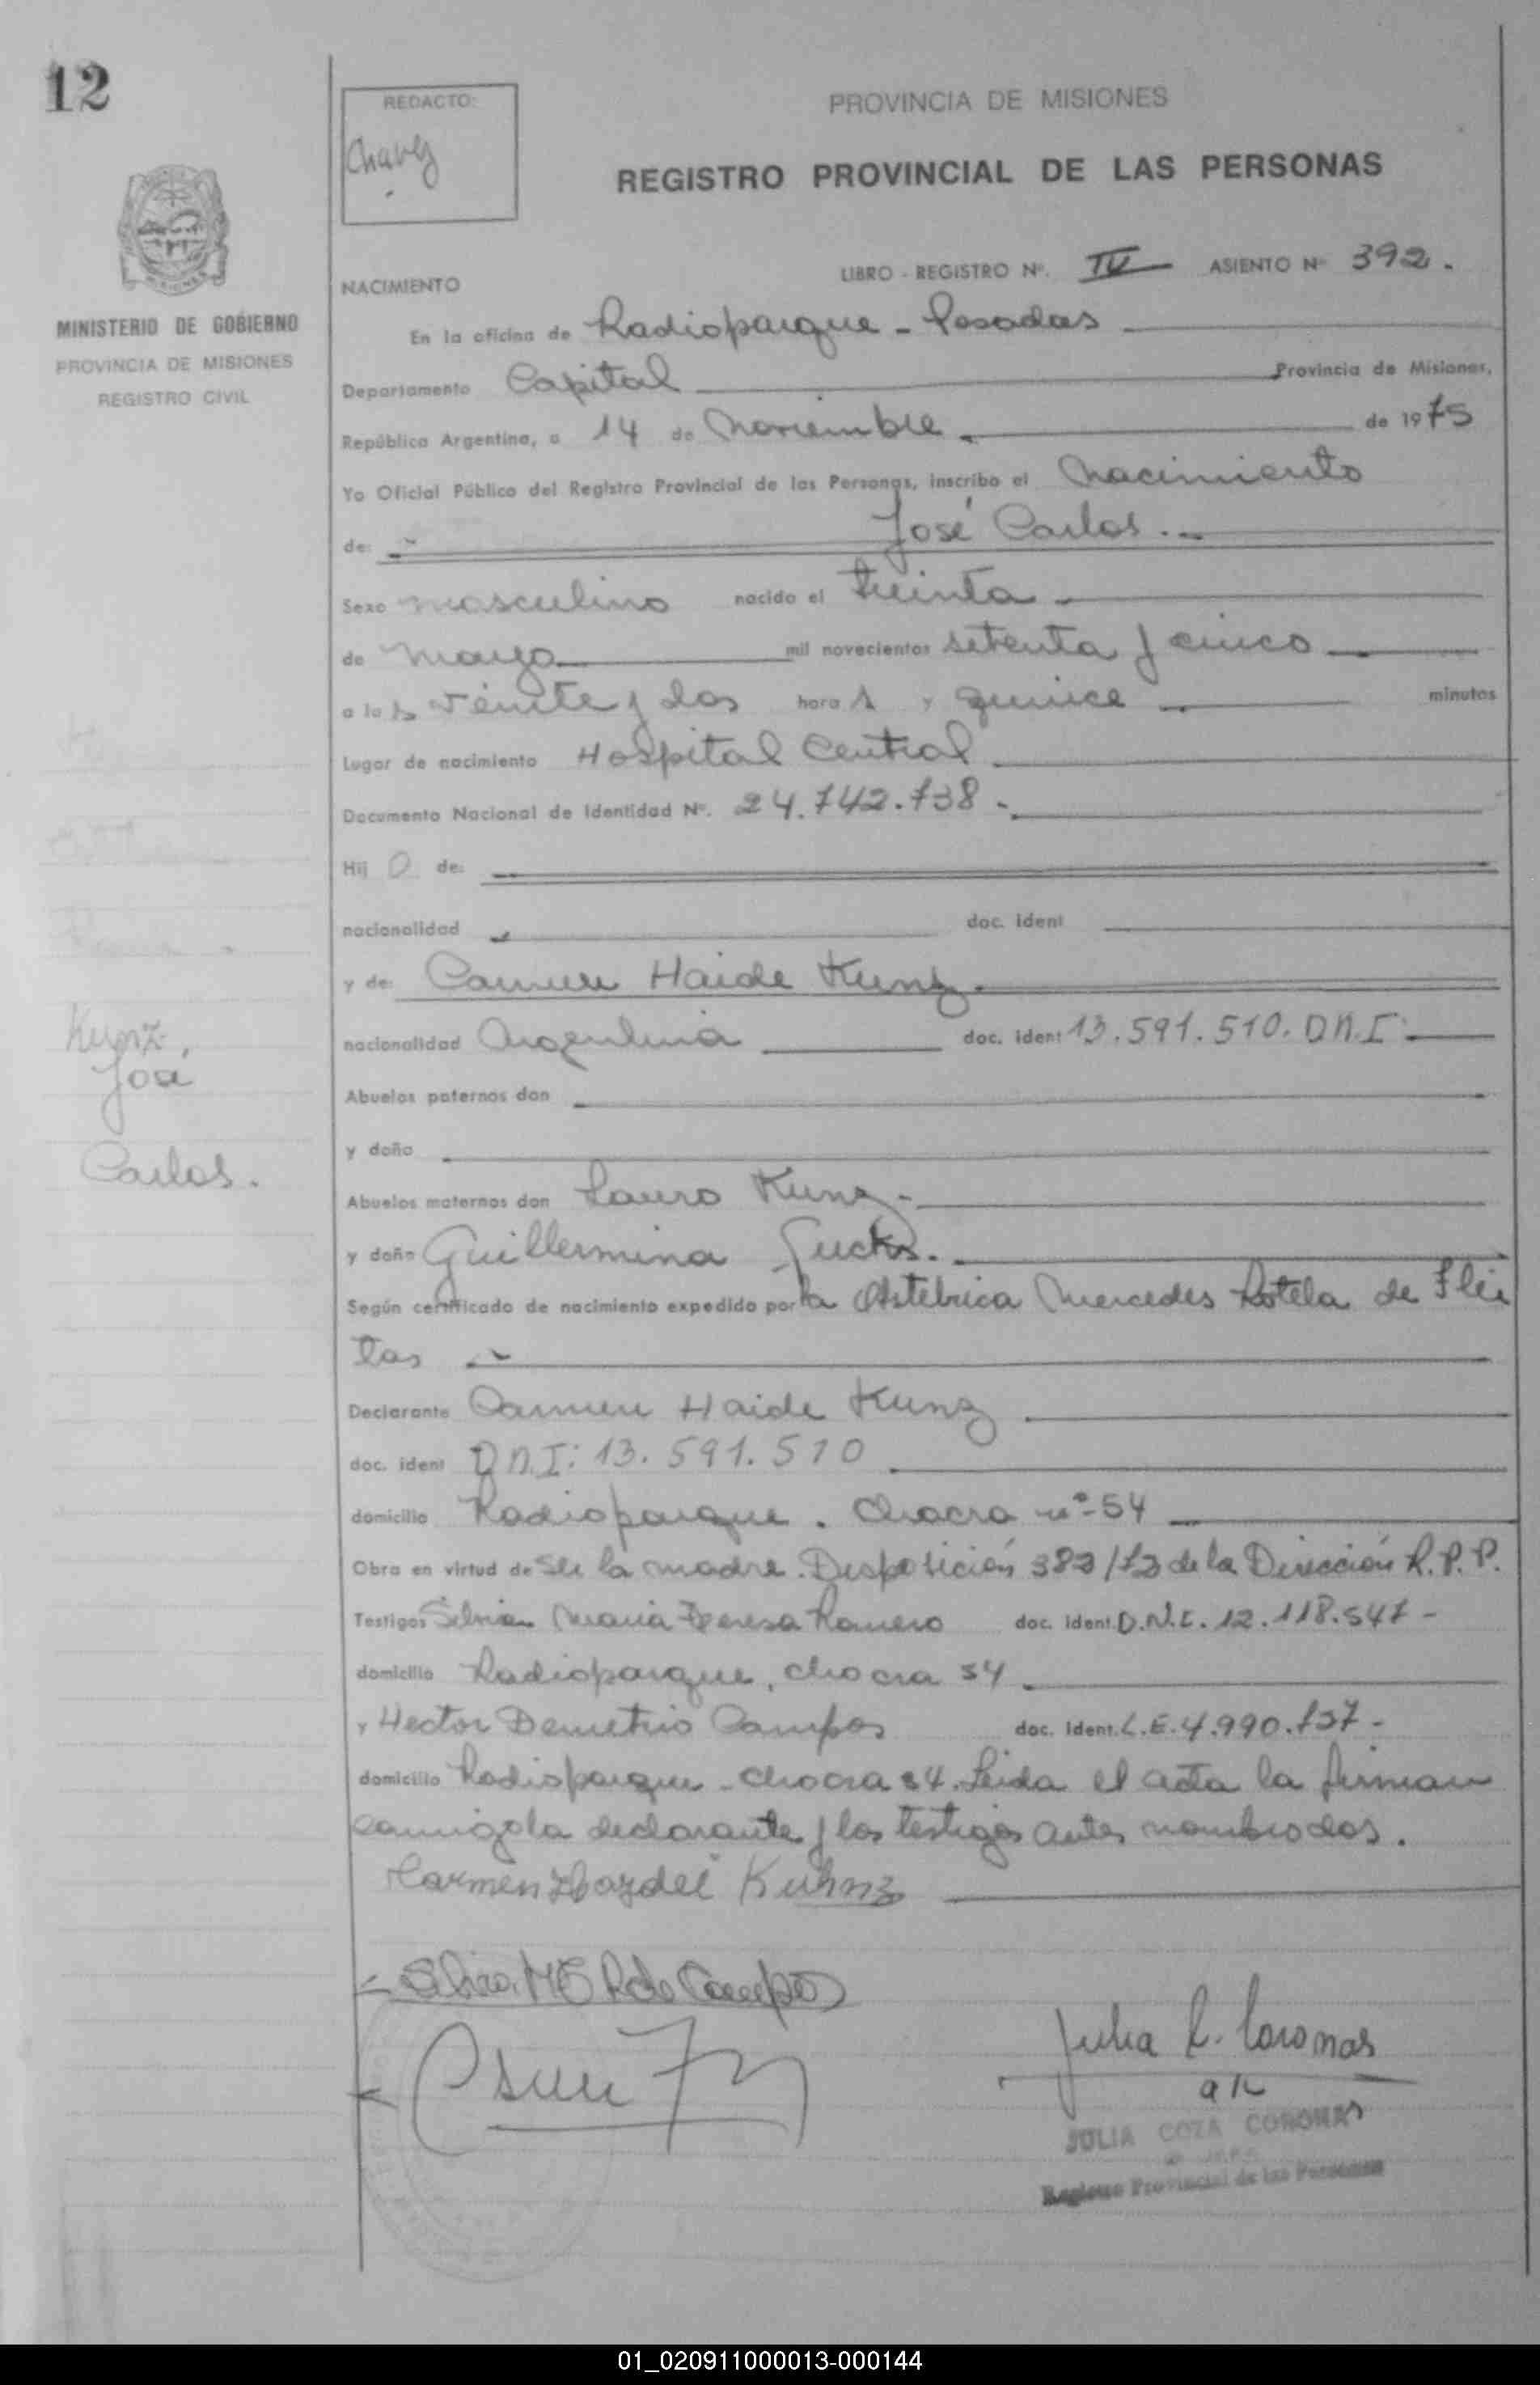 12
REDACTO:
Chavez
PROVINCIA DE MISIONES
REGISTRO PROVINCIAL DE LAS PERSONAS
MINISTERIO DE GOBIERNO
PROVINCIA DE MISIONES
REGISTRO CIVIL
LIBRO - REGISTRO Nº. IV ASIENTO Nº 392.
NACIMIENTO
En la oficina de Radioparque - Posadas
Departamento Capital Provincia de Misiones,
República Argentina, a 14 de Noviembre de 1975
Yo Oficial Público del Registro Provincial de las Personas, inscribo el Nacimiento
de: José Carlos.
Sexo masculino nacido el treinta
de mayo mil novecientos setenta y cinco
a las veinte y dos horas y quince minutos
Lugar de nacimiento Hospital Central
Documento Nacional de Identidad Nº. 24.742.738
Hijo de:
nacionalidad doc. ident
y de: Carmen Haide Kunz
nacionalidad Argentina doc. ident 13.591.510. D.N.I
Kunz,
José
Carlos.
Abuelos paternos don
y doña
Abuelos maternos don Lauro Kunz
y doña Guillermina
Según certificado de nacimiento expedido por la Obstetrica Mercedes Rotela de Flei
tas
Declarante Carmen Haide Kunz
doc. ident D.N.I: 13.591.510
domicilio Radioparque. Chacra nº 54
Obra en virtud de ser la madre. Disposición 383/73 de la Dirección R.P.P.
Testigos Silvia Maria Teresa Romero doc. ident. D.N.I. 12.118.547 -
domicilio Radioparque, chacra 54
y Hector Demetrio Campos doc. ident. L.E. 4.990.737 -
domicilio Radioparque - chacra 54. Leida el acta la firman
conmigo la declarante y los testigos antes nombrados.
Carmen Haydeé Kuhnz
Silvia M T R de Campos
Julia C. Coronas
JULIA COZA CORONAS
Registro Provincial de las Personas
01_020911000013-000144